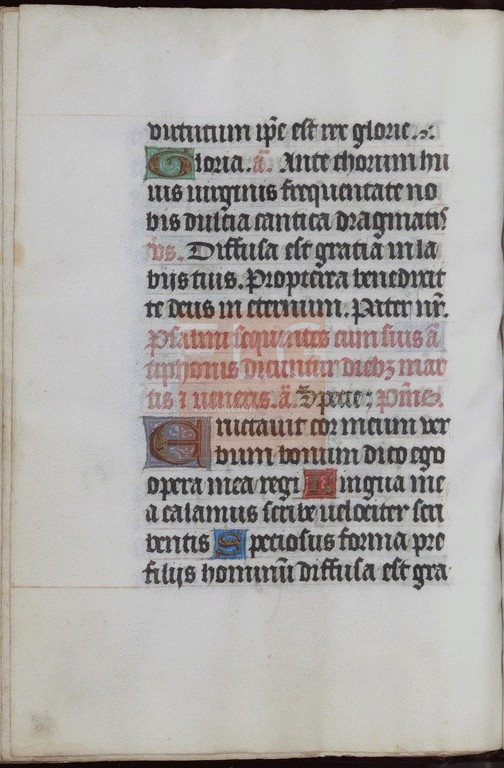 uirtutum ip̄e est rex glorie.
Gloria. aᷓ. Ante thorum hu
ius uirginis frequentate no
bis dulcia cantica dragmatis
v̄s. Diffusa est gratia in la
bijs tuis. Propterea benedixit
te deus in eternum. Pater nr̄.
Psalmi sequentes cum suis ā
tiphonis dicuntur diebꝫ mar
tis ⁊ ueneris. ā. Specie; ps̄mꝰ.
Eructauit cor meum ver
bum bonum dico ego
opera mea regi Lingua me
a calamus scribe uelociter scri
bentis Speciosus forma pre
filijs hominū diffusa est gra